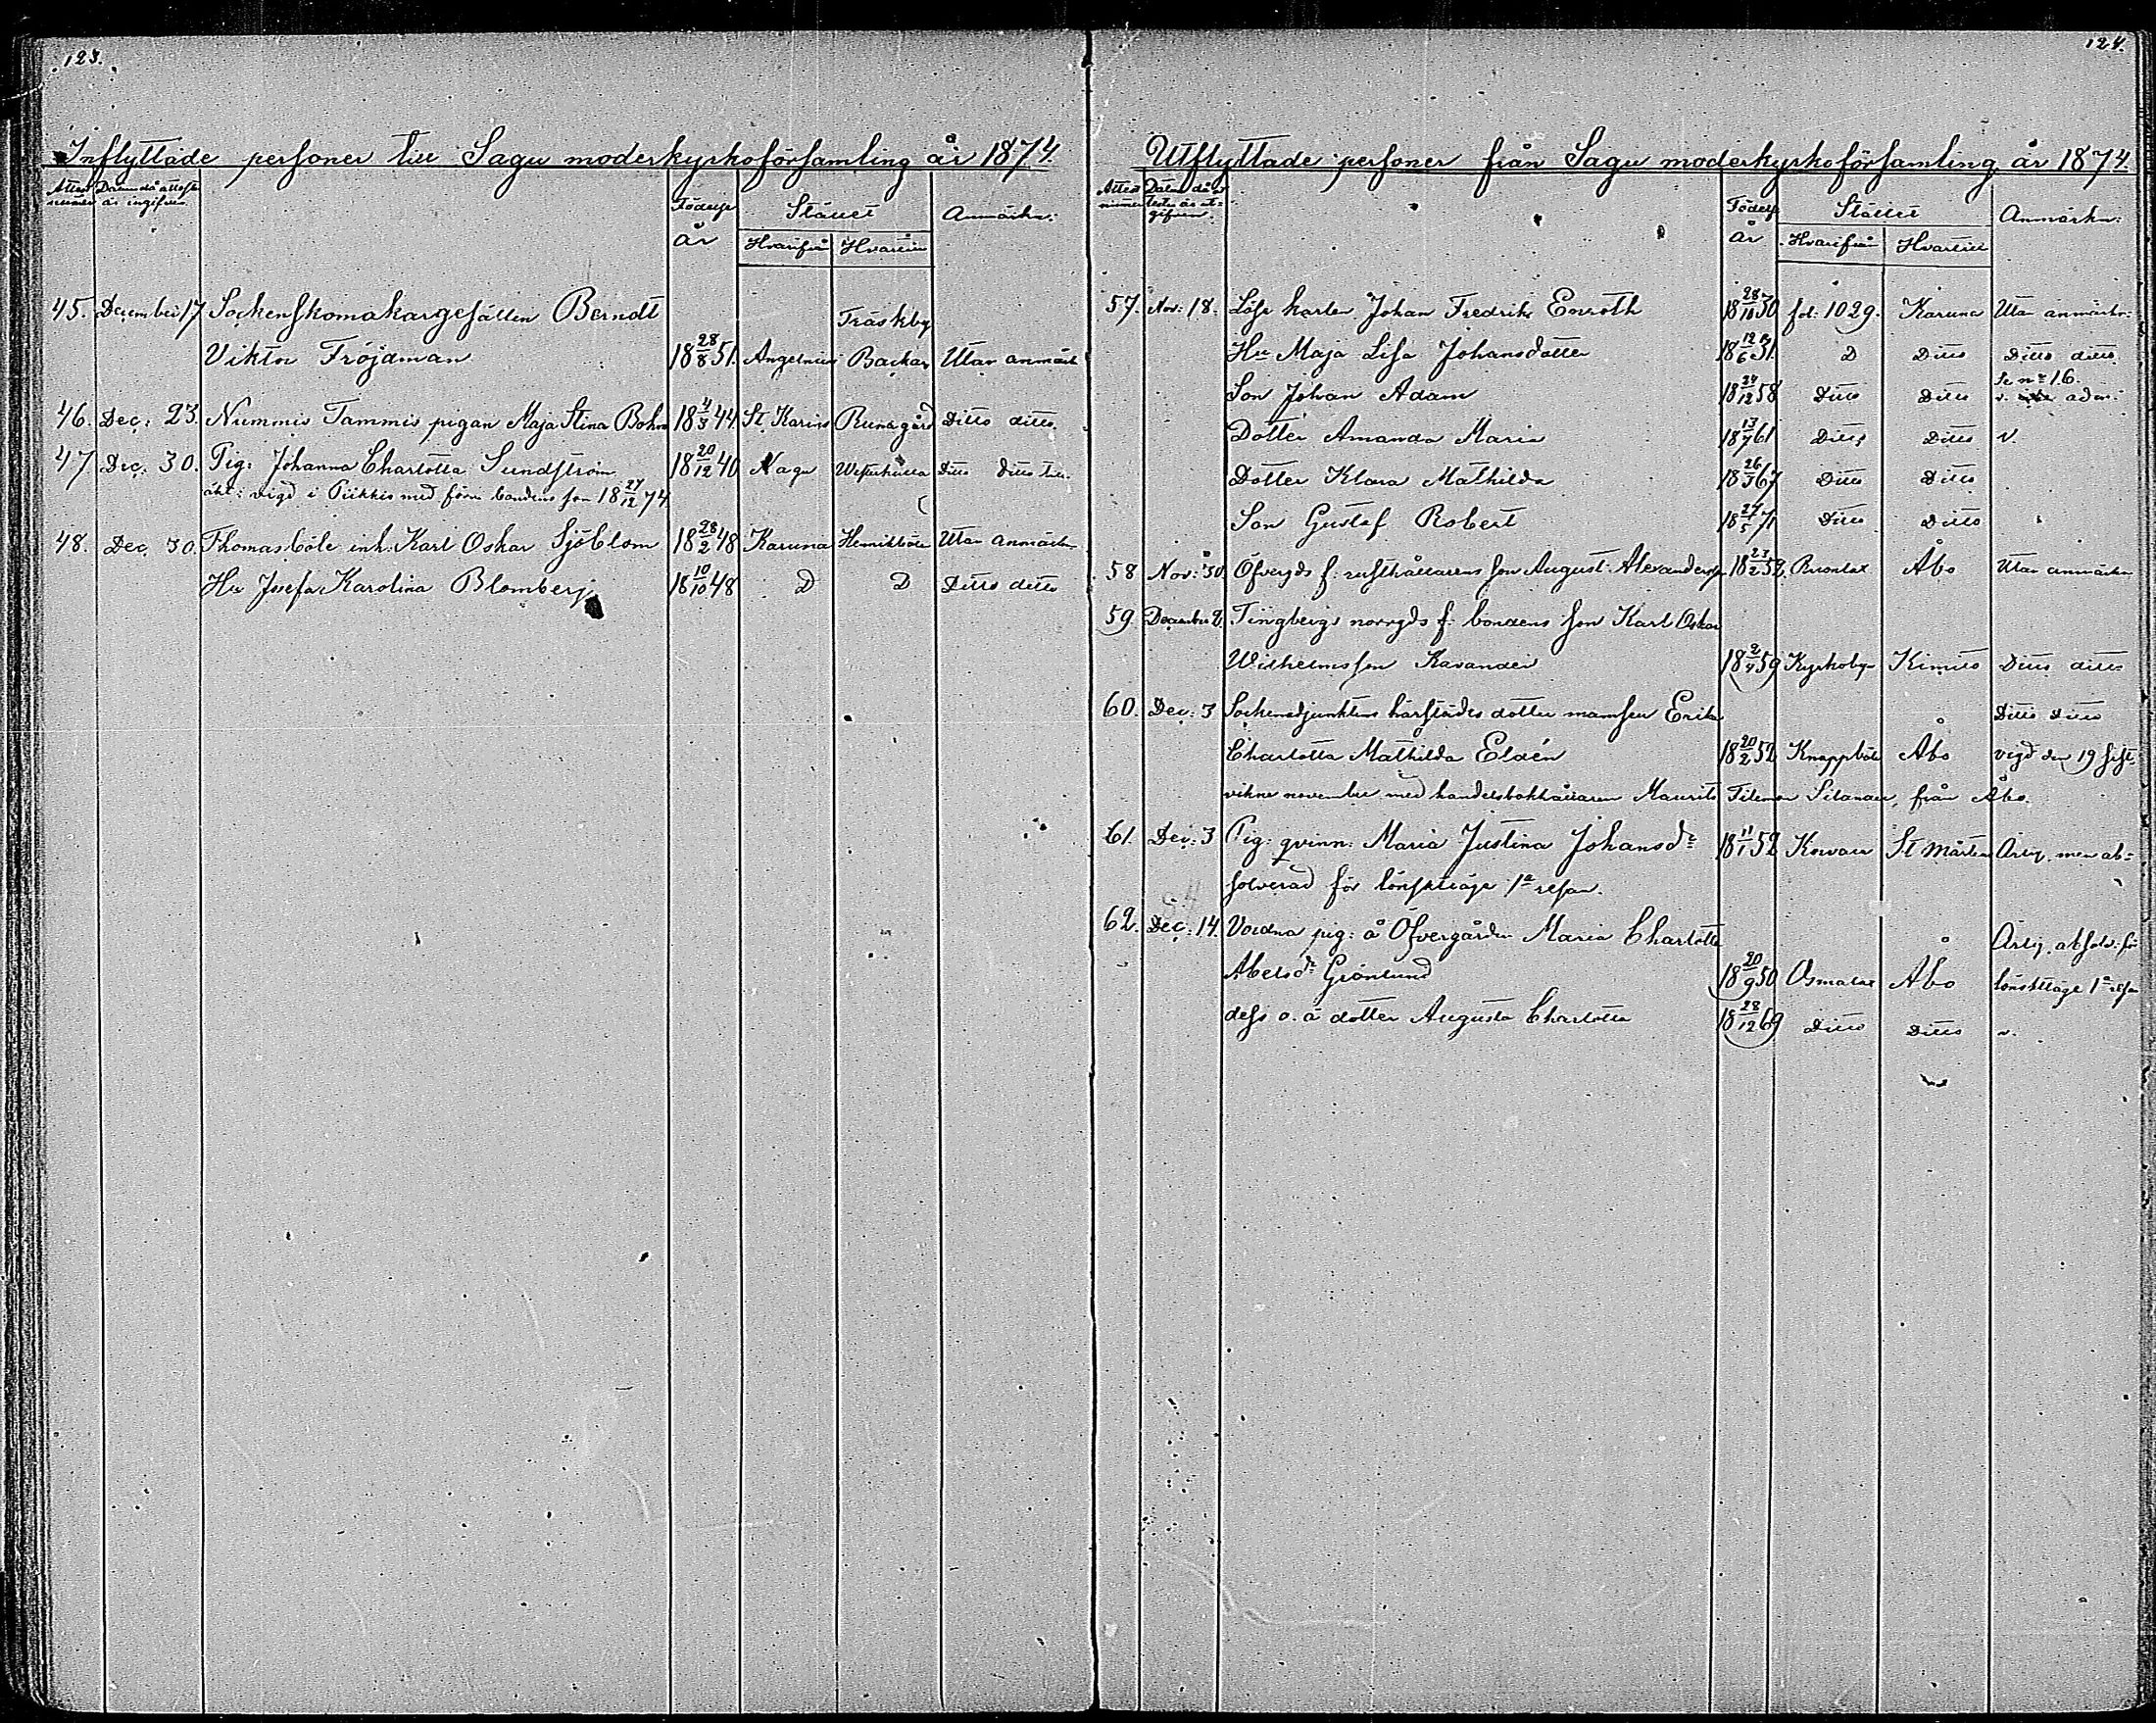 123.
Inflyttade personer till Sagu moderkyrkoförsamling år 1874.
Attest nummer Datum då attesten är ingifven. Födelse år Stället Anmärkn:
Hvarifrån Hvartill
45. December 17 Sockenskomakargesällen Berndt Träskby
Viktor Fröjdman 18 28/8 51. Angelniemi Backas Utan anmärkn
46. Dec: 23. Nummis Tammis pigan Maja Stina Bohm 18 4/3 44. St Karins Runagård Ditto ditto
47 Dec: 30. Pig: Johanna Charlotta Sundström 18 20/12 40 Nagu Westerkulla Ditto ditto
äkt: vigd i Piikkis med förre bondens son 18 27/12 74
48. Dec. 30. Thomasböle inh: Karl Oskar Sjöblom 18 28/2 48 Karuna Henriksböle Utan anmärkn
Hu Josefa Karolina Blomberg 18 10/10 48 D D Ditto ditto
124.
Utflyttade personer från Sagu moderkyrkoförsamling år 1874.
Attest nummer Datum då attesten är utgifven. Födelse år Stället Anmärkn:
Hvarifrån Hvartill
57. Nov: 18. Löse karlen Johan Fredrik Enroth 18 28/10 30 fol: 1029. Karuna Utan anmärkn:
Hu Maja Lisa Johansdotter 18 12/6 31. D Ditto Ditto ditto
Son Johan Adam 18 24/12 58 Ditto Ditto Se no 16.
Dotter Amanda Maria 18 13/7 61 Ditto Ditto v.
Dotter Klara Mathilda 18 26/3 67 Ditto Ditto
Son Gustaf Robert 18 27/5 71 Ditto Ditto
58 Nov: 30. Öfvergds f. rusthållarens son August Alexandersson 18 23/2 53. Ruonlax Åbo Utan anmärkn
59. December 2. Tingbergs norrgds f. bondens son Karl Oskar
Wilhelmsson Kavander 18 2/4 59 Kyrkoby Kimito Ditto ditto
60. Dec: 3 Sockenadjunktens härstädes dotter mamsell Erika Ditto ditto
Charlotta Mathilda Eldén 18 20/2 52 Knappböle Åbo vigd den 19 sist-
vikne november med handelsbokhållaren Maurits Filemon Silander, från Åbo.
61. Dec: 3 Pig. qvinn: Maria Justina Johansdr 18 11/1 52 Korvais St Mårtens Ärlig. men ab-
solverad för lönskläge 1a resan.
62. Dec: 14. Vordna pig: å Öfvergården Maria Charlotta Ärlig, absolv: för
Abelsdr Grönlund 18 20/9 50 Osmalax Åbo lönskläge 1a resan
dess o. ä dotter Augusta Charlotta 18 28/12 69 Ditto Ditto v.